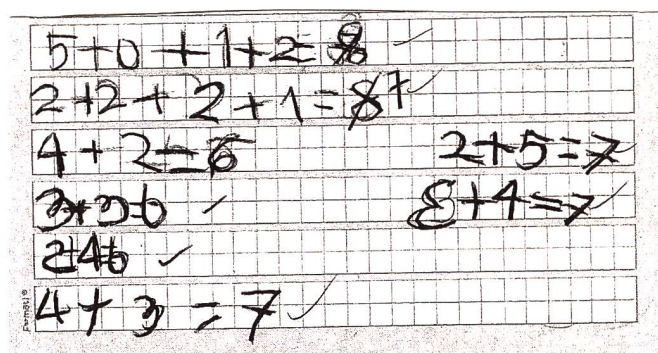 5+0+1+2=8
2+2+2+1=87
4+2=6 2+5=7
3+3=6 3+4=7
2+4=6
4+3=7